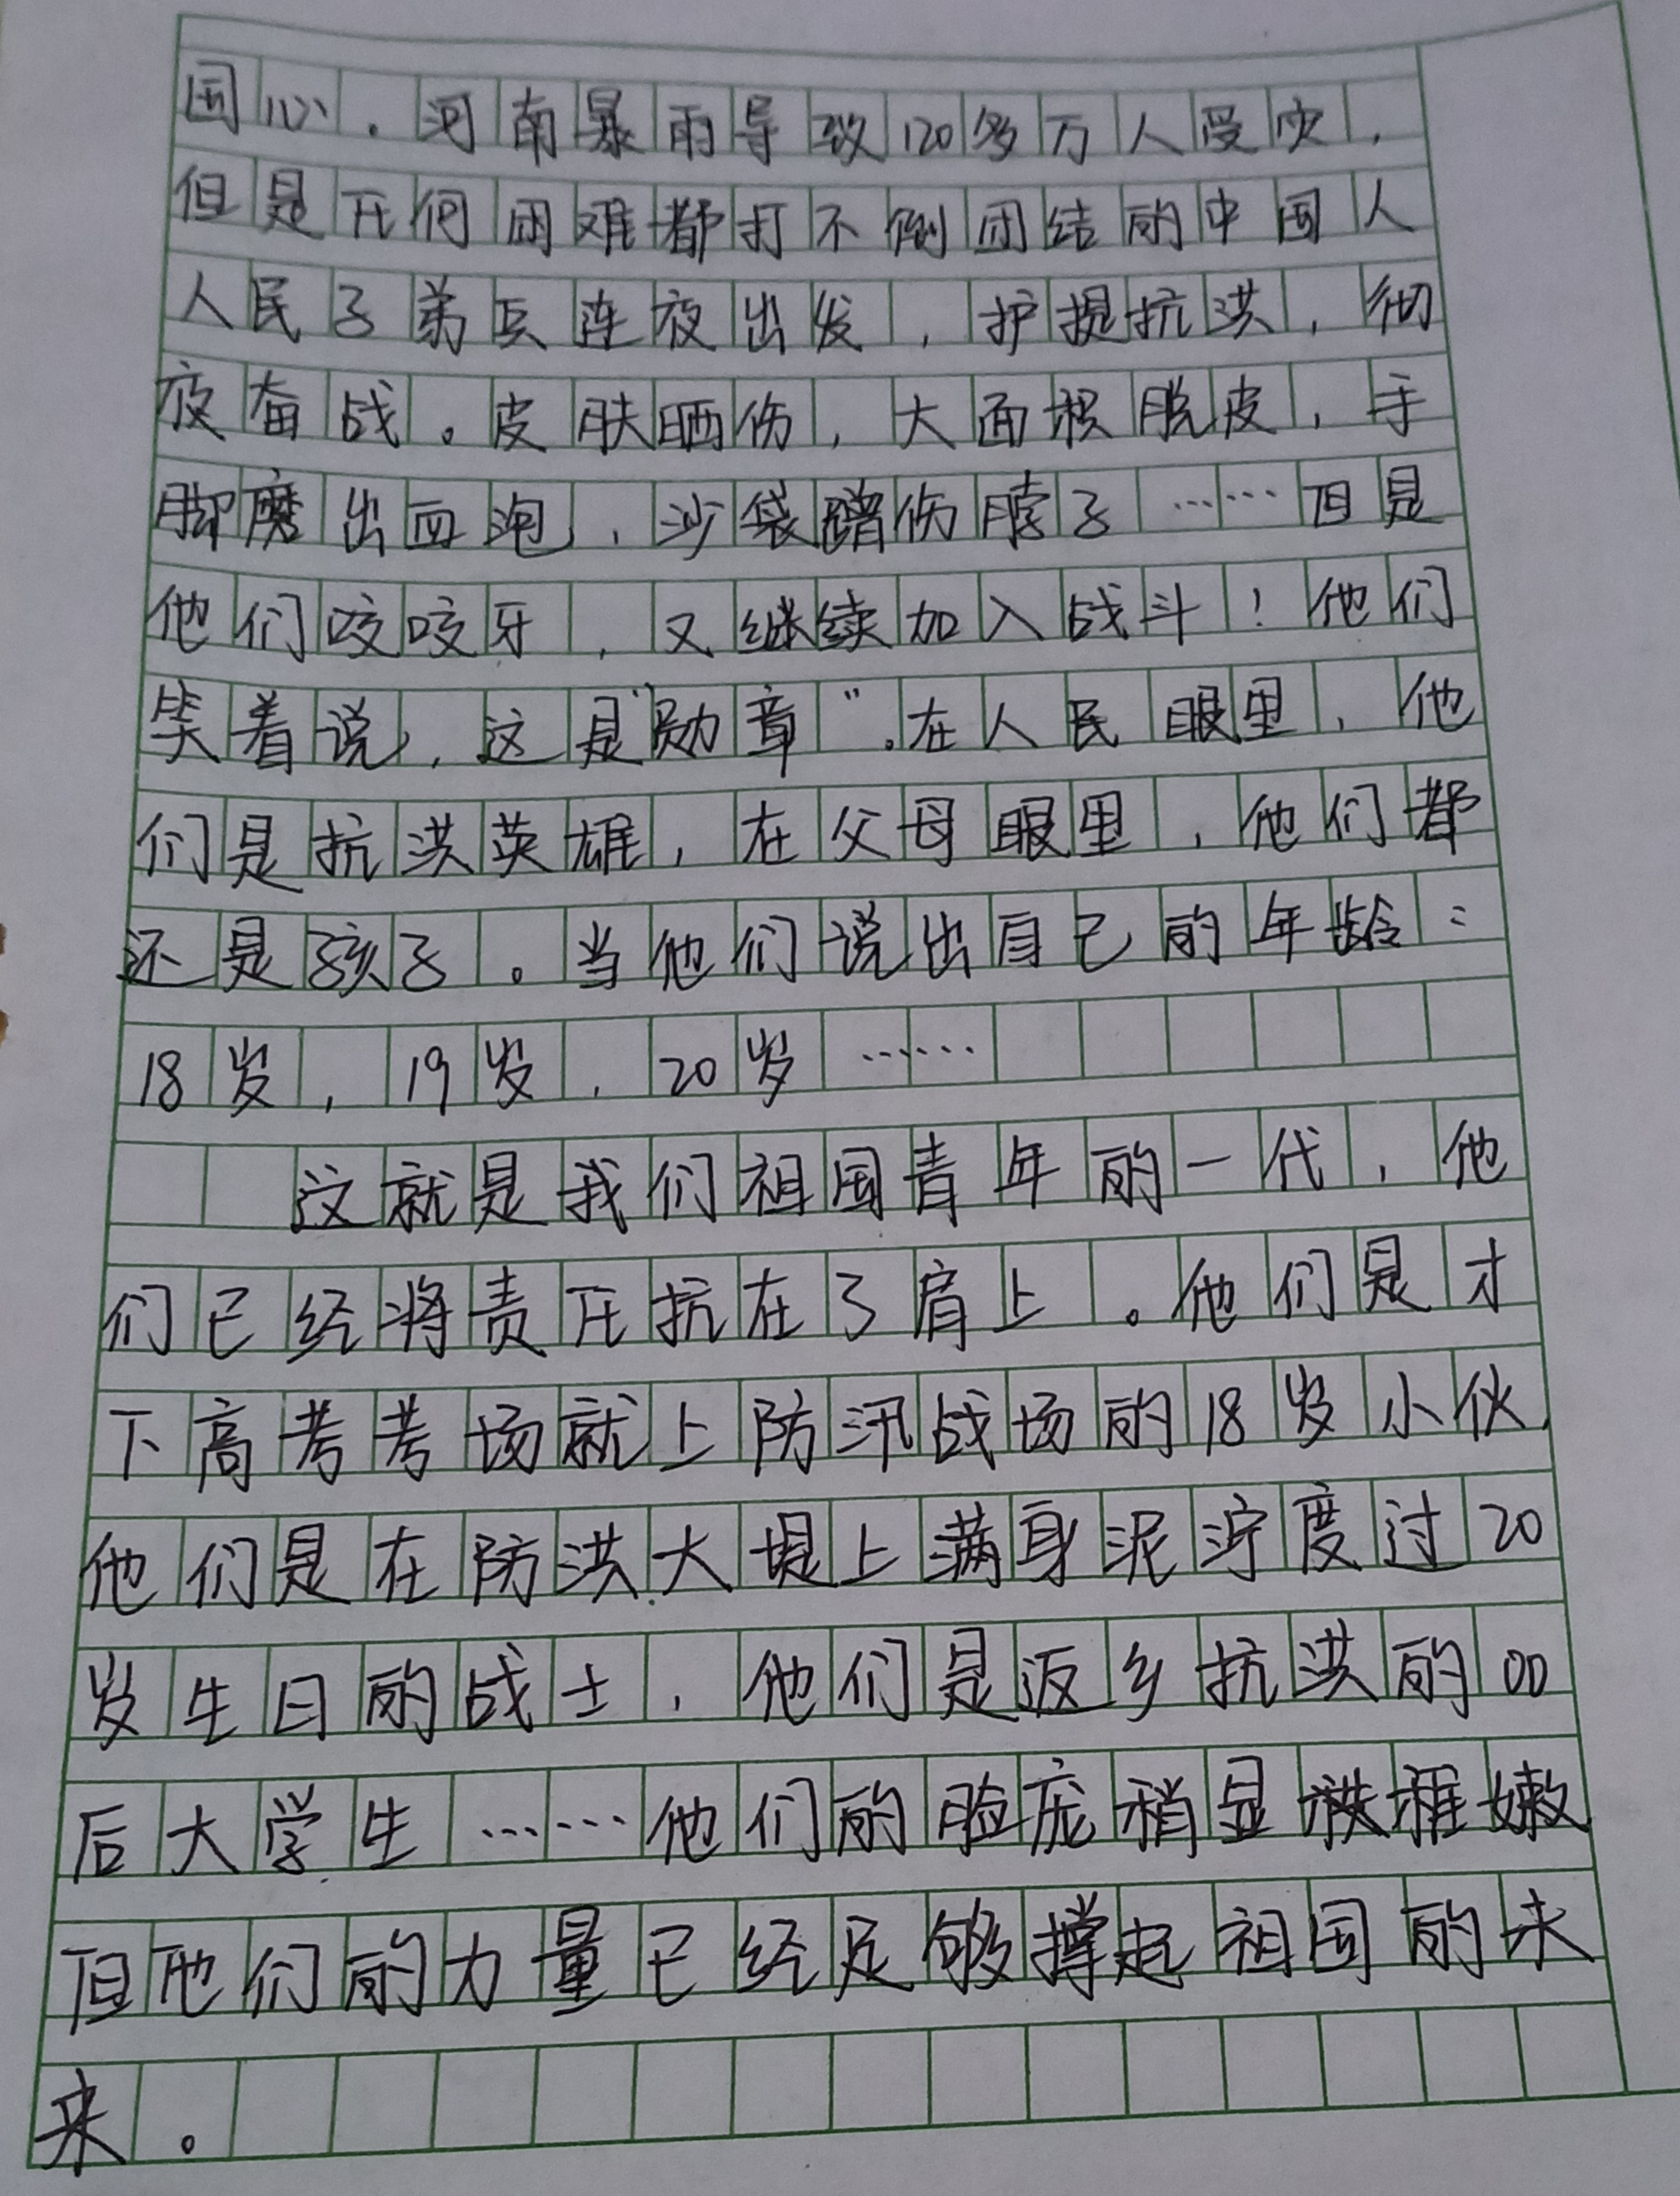 国心.河南暴雨导致120多万人受灾,
但是任何困难都打不倒团结的中国人
人民子弟兵连夜出发,护提抗洪,彻
夜奋战。皮肤晒伤,大面积脱皮,手
脚磨出血泡,沙袋蹭伤脖子……但是
他们咬咬牙,又继续加入战斗!他们
笑着说,这是“勋章”。在人民眼里,他
们是抗洪英雄,在父母眼里,他们都
还是孩子。当他们说出自己的年龄:
18岁,19岁,20岁……
这就是我们祖国青年的一代,他
们已经将责任抗在了肩上。他们是才
下高考考场就上防汛战场的18岁小伙,
他们是在防洪大堤上满身泥泞度过20
岁生日的战士,他们是返乡抗洪的00
后大学生……他们的脸庞稍显稚嫩
但他们的力量已经足够撑起祖国的未
来。